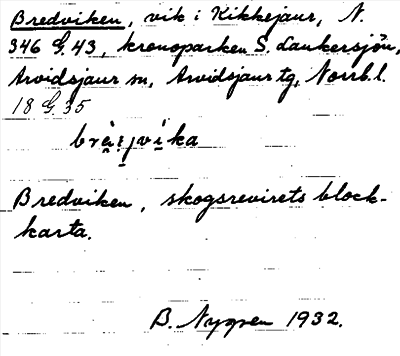 Bredviken, vik i Kikkejaur, N.
346 G. 43, kronoparken S. Laukersjön,
Arvidsjaur sn, Arvidsjaur tg, Norrb. l.
18 G 35
brèi̯vi̍ka
Bredviken, skogsrevirets block-
karta.
B. Nygren 1932.